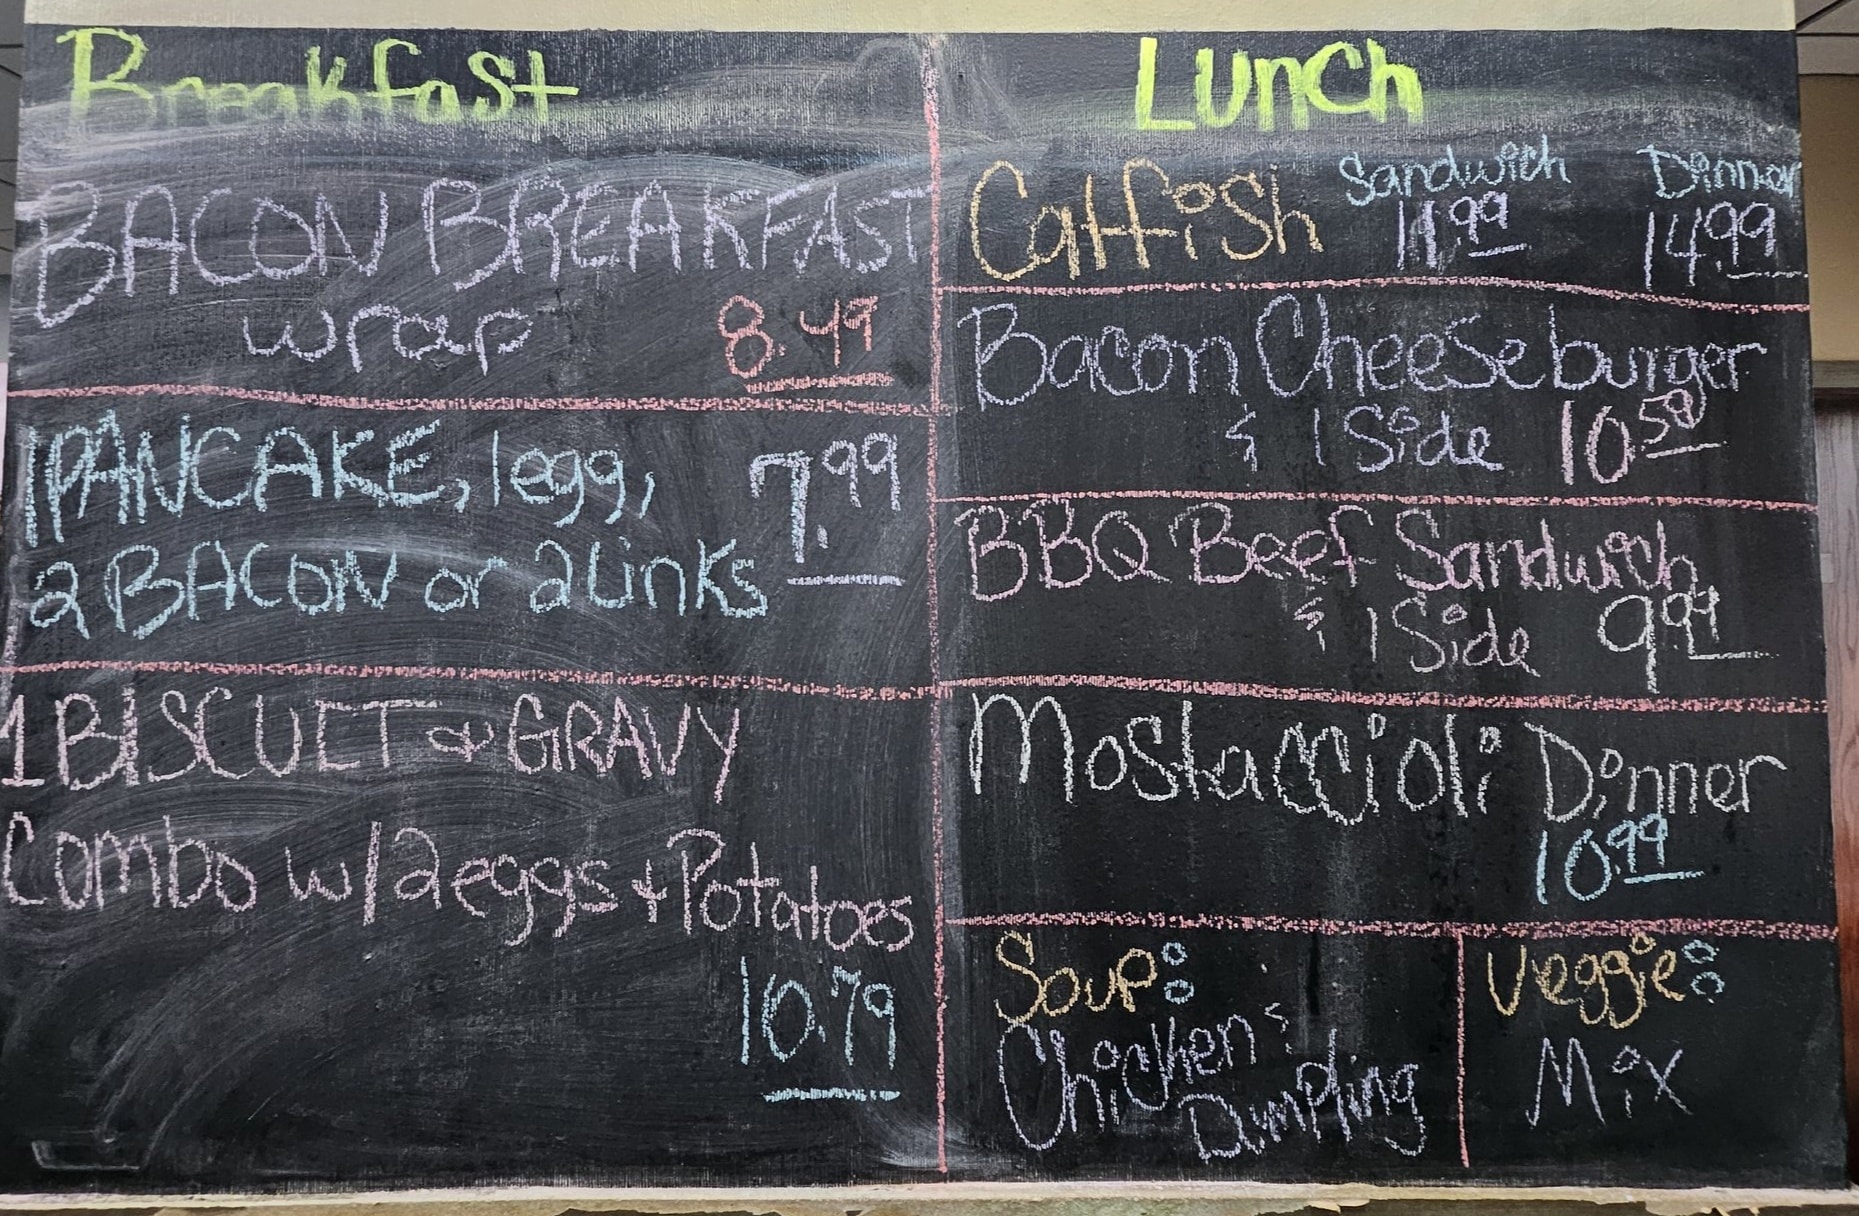 Breakfast
BACON BREAKFAST
wrap 8.49
1 PANCAKE, 1 egg, 7.99
2 BACON or 2 Links
1 BISCUIT & GRAVY
Combo w/2 eggs + Potatoes
10.79
Lunch
Catfish Sandwich 11.99 Dinner 14.99
Bacon Cheeseburger
& 1 Side 10.50
BBQ Beef Sandwich
& 1 Side 9.99
Mostaccioli Dinner
10.99
Soup:
Chicken &
Dumpling
Veggie:
Mix